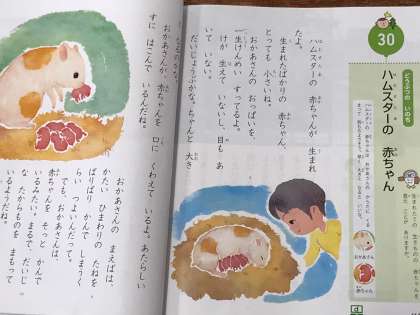 30
どうぶつの いのち
ハムスターの 赤ちゃん
おかあさん
赤ちゃん
ハムスターの 赤ちゃんが 生まれ
たよ。
生まれたばかりの 赤ちゃん、
とっても 小さいね。
おかあさんの おっぱいを、
一生けんめい すってるよ。
けが 生えて いないし、目も あ
いて いない。
だいじょうぶかな。ちゃんと 大き
くなるのかな。
おかあさんが、赤ちゃんを 口に くわえて いるよ。あたらしい
すに はこんで いるんだね。
おかあさんの まえばは、
かたい ひまわりの たねを
ぱりぱり かんで しまうく
らい つよいんだって。
でも、おかあさんは、
赤ちゃんを そっと かんで
いるみたい。まるで、だいじ
な たからものを まもって
いるようだね。